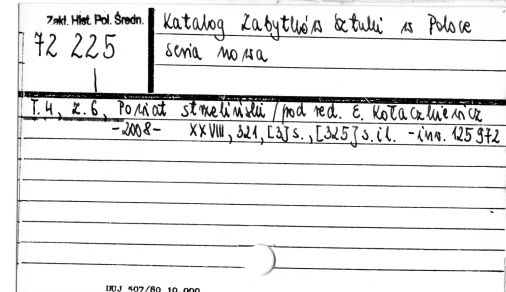 Zakł. Hist. Pol. Średn.
72 225
Katalog Zabytków Sztuki w Polsce
seria nowa
T. 4, z. 6, Powiat strzeliński / pod red. E. Kołaczkiewicz
-2008- XXVIII, 321, [3] s., [325] s. il. - inw. 125972
DUJ 507/80 10.000